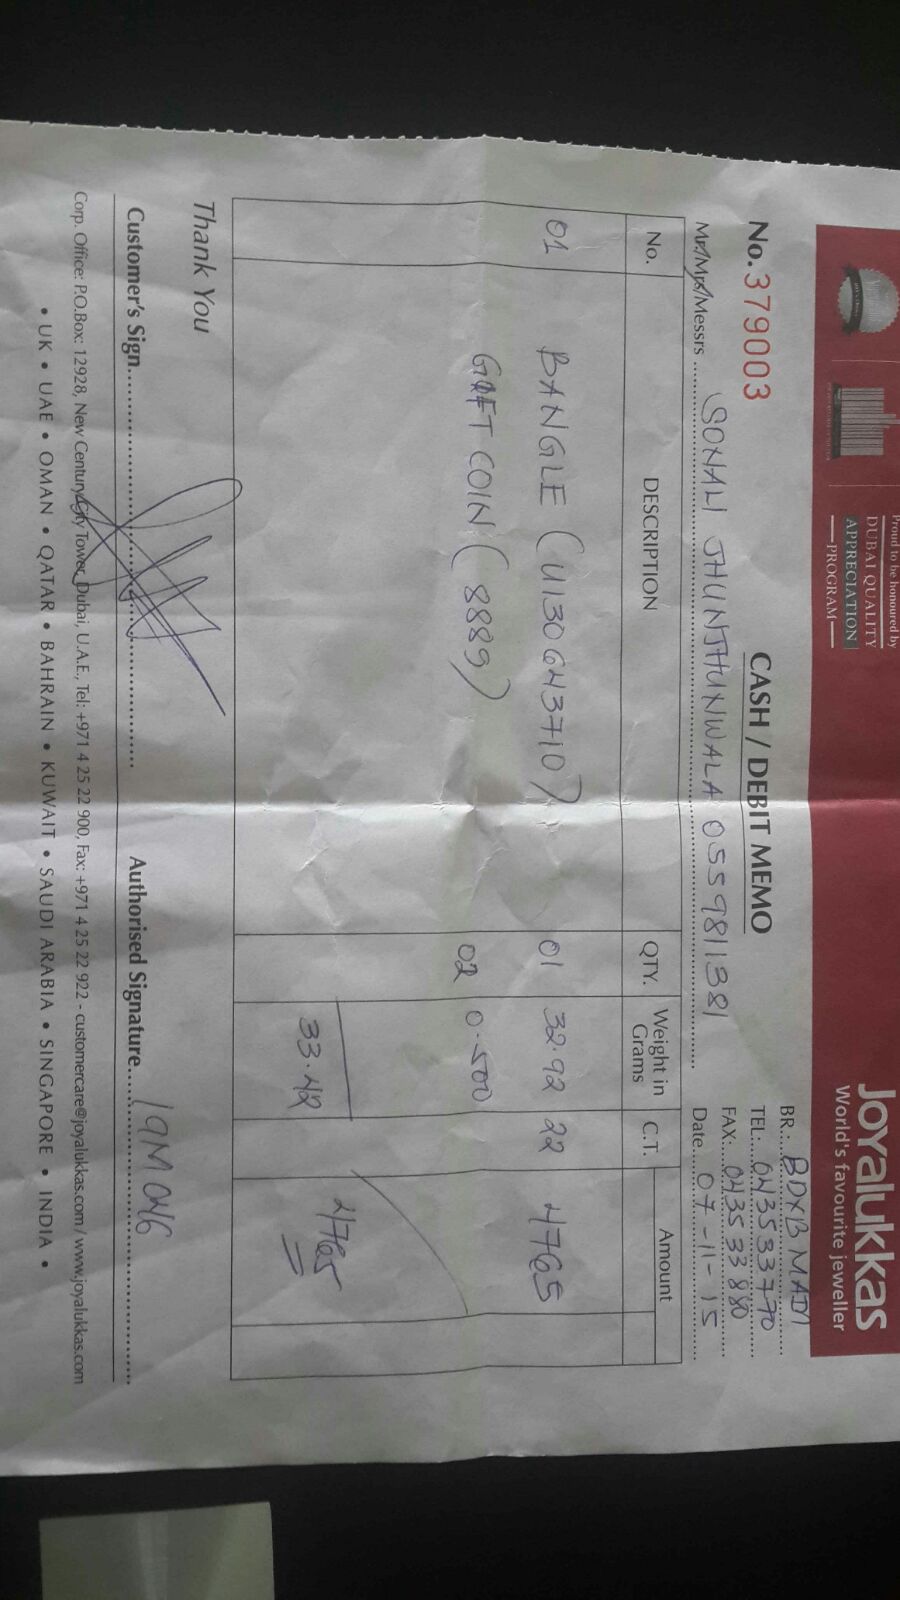 Proud to be honoured by
DUBAI QUALITY
APPRECIATION
PROGRAM
Joyalukkas
World's favourite jeweller
No. 379003
CASH / DEBIT MEMO
BR : BDXB MAIN
TEL: 043533770
FAX: 043533880
Mr/Mrs/Messrs SONALI JHUNJHUNWALA 0559811381
Date 07-11-15
No. DESCRIPTION QTY. Weight in Grams C.T. Amount
01 BANGLE (U130643710) 01 32.92 22 4765
GIFT COIN (8889) 02 0.500
33.42 4765
Thank You
Customer's Sign Authorised Signature
Corp. Office: P.O.Box: 12928, New Century City Tower, Dubai, U.A.E., Tel: +971 4 25 22 900, Fax: +971 4 25 22 922 - customercare@joyalukkas.com / www.joyalukkas.com
• UK • UAE • OMAN • QATAR • BAHRAIN • KUWAIT • SAUDI ARABIA • SINGAPORE • INDIA •